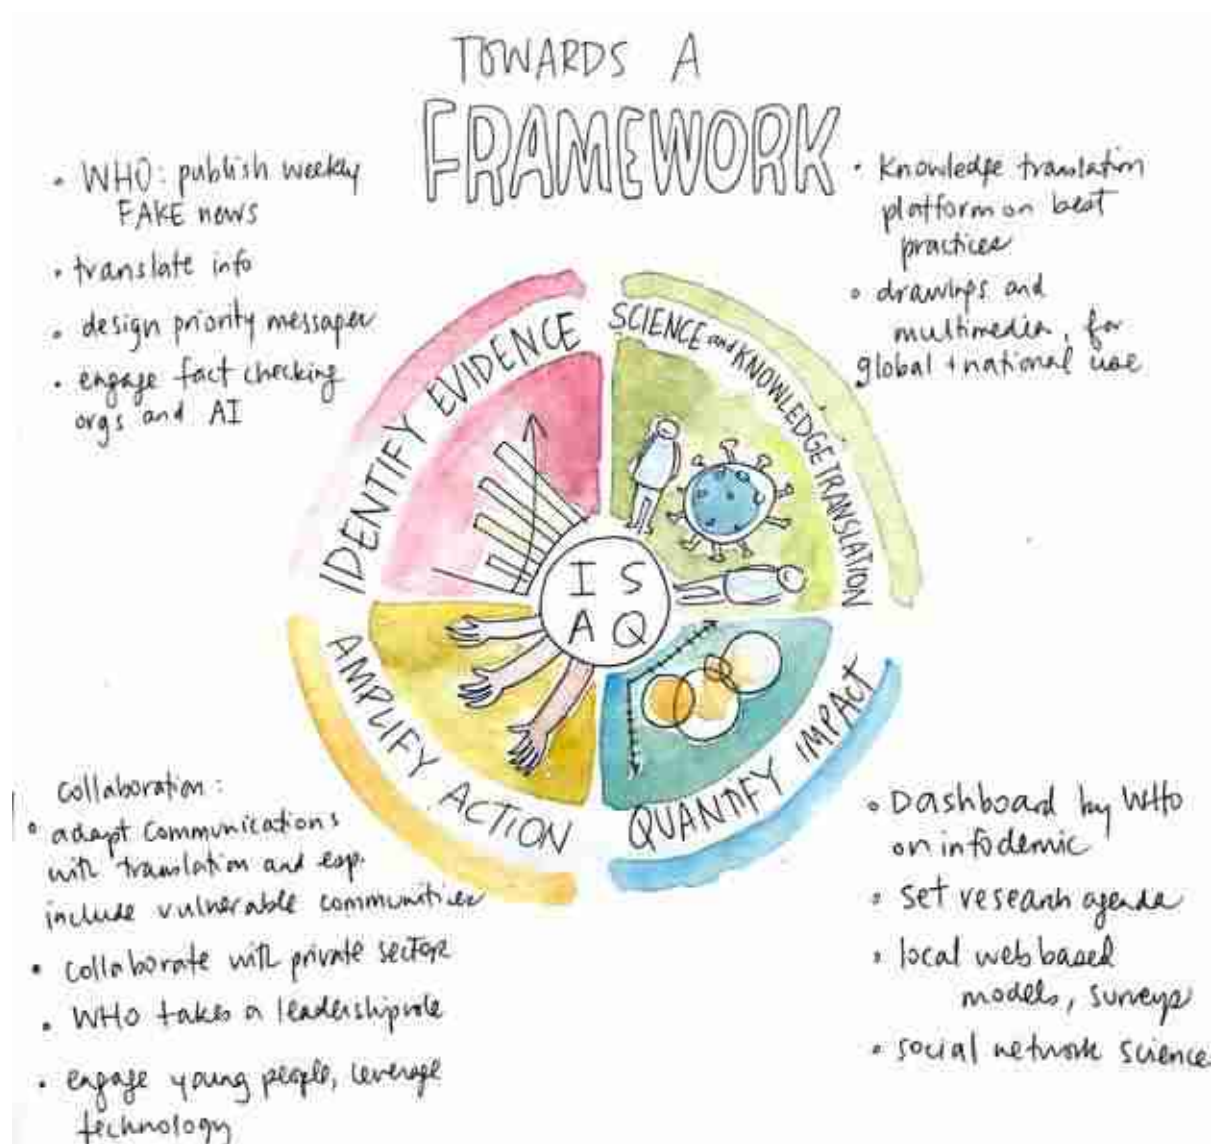 TOWARDS A
FRAMEWORK
• WHO: publish weekly
FAKE news
• translate info
• design priority messages
• engage fact checking
orgs and AI
• Knowledge translation
platform on best
practices
• drawings and
multimedia, for
global + national use
IDENTIFY EVIDENCE
SCIENCE and KNOWLEDGE TRANSLATION
I S
A Q
AMPLIFY ACTION
QUANTIFY IMPACT
Collaboration:
• adapt communications
with translation and esp.
include vulnerable communities
• collaborate with private sector
• WHO takes a leadership role
• engage young people, leverage
technology
• Dashboard by WHO
on infodemic
• set research agenda
• local web based
models, surveys
• social network science